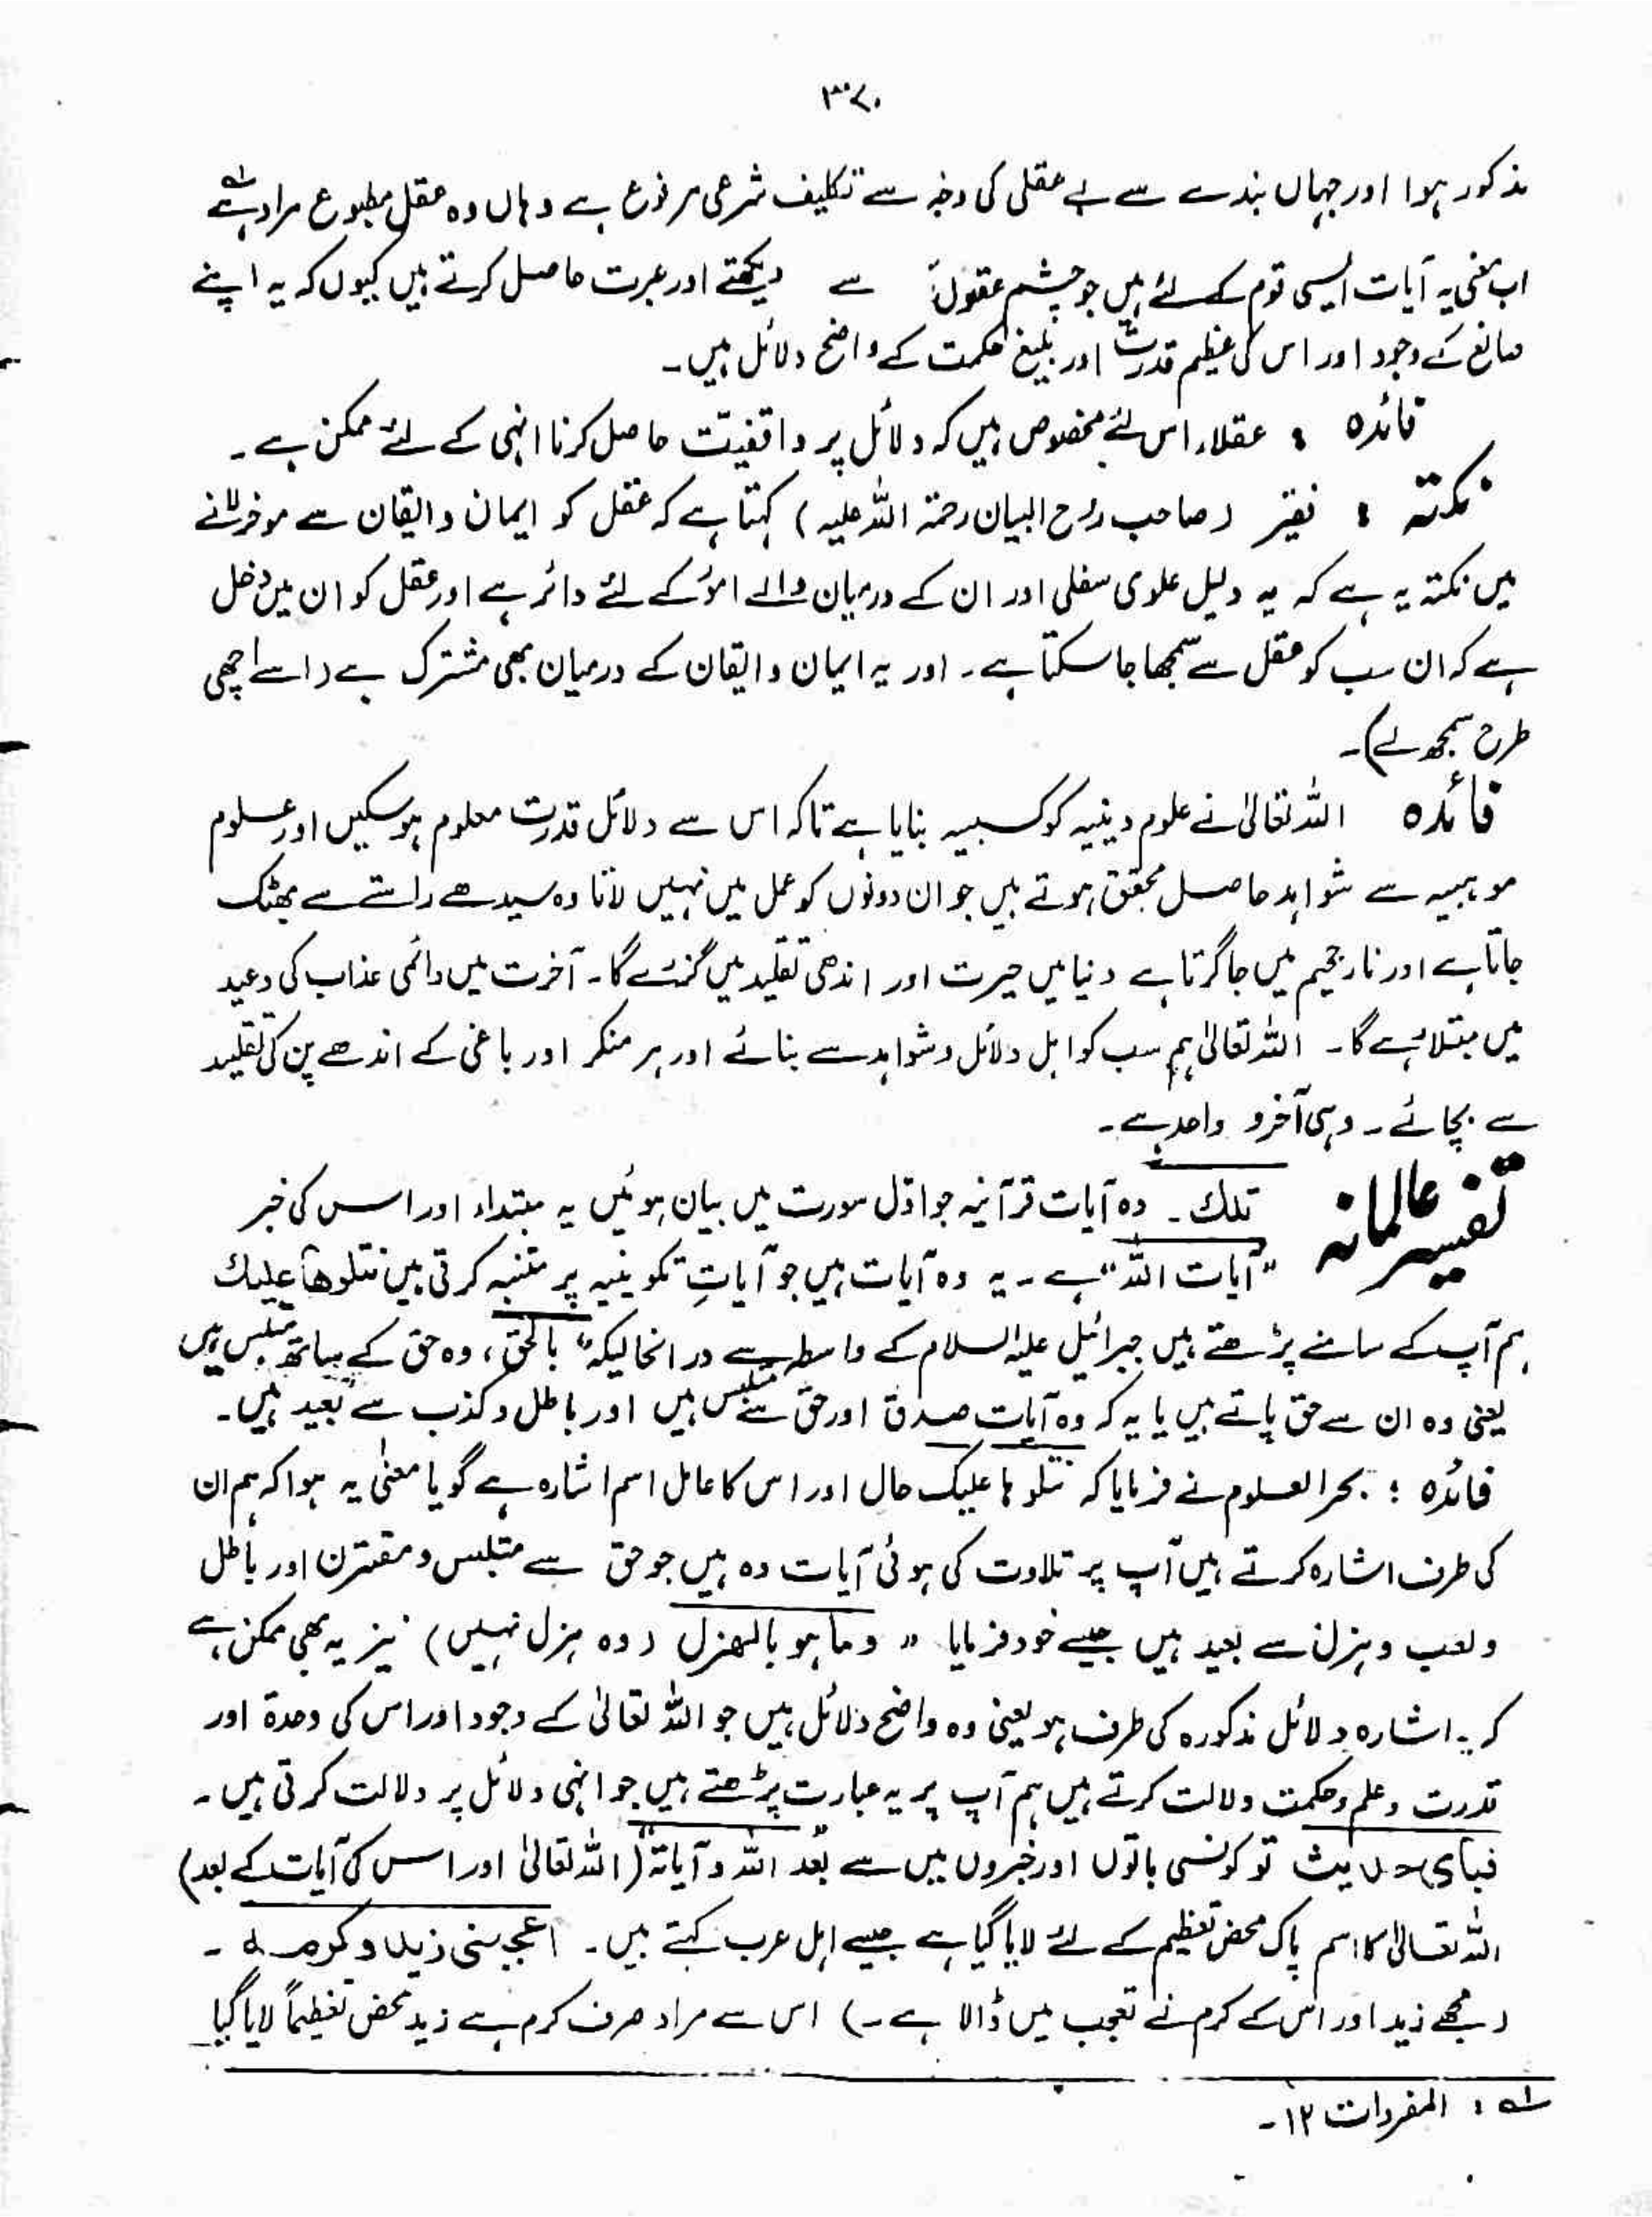 ۳۷۰
مذکور ہوا اور جہاں بندے سے بے عقلی کی وجہ سے تکلیف شرعی مرفوع ہے وہاں وہ عقل مطبوع مراد ہے لہ
اب معنی یہ آیات ایسی قوم کے لئے ہیں جو چشم عقول سے دیکھتے اور عبرت حاصل کرتے ہیں کیوں کہ یہ اپنے
صانع کے وجود اور اس کی عظیم قدرت اور بلیغ حکمت کے واضح دلائل ہیں۔
فائدہ : عقلاء اس لئے مخصوص ہیں کہ دلائل پر واقفیت حاصل کرنا انہی کے لئے ممکن ہے ۔
نکتہ : فقیر (صاحب روح البیان رحمۃ اللہ علیہ) کہتا ہے کہ عقل کو ایمان و ایقان سے موخر لانے
میں نکتہ یہ ہے کہ یہ دلیل علوی سفلی اور ان کے درمیان والے امور کے لئے دائر ہے اور عقل کو ان میں دخل
ہے کہ ان سب کو عقل سے سمجھا جا سکتا ہے۔ اور یہ ایمان و ایقان کے درمیان بھی مشترک ہے (اسے اچھی
طرح سمجھ لے)۔
فائدہ اللہ تعالیٰ نے علوم دینیہ کو کسبیہ بنایا ہے تاکہ اس سے دلائل قدرت معلوم ہو سکیں اور علوم
موہبیہ سے شواہد حاصل محقق ہوتے ہیں جو ان دونوں کو عمل میں نہیں لاتا وہ سیدھے راستے سے بھٹک
جاتا ہے اور نار جحیم میں جا گرتا ہے دنیا میں حیرت اور اندھی تقلید میں گزرے گا۔ آخرت میں دائمی عذاب کی وعید
میں مبتلا رہے گا۔ اللہ تعالیٰ ہم سب کو اہل دلائل و شواہد سے بنائے اور ہر منکر اور باغی کے اندھے پن کی تقلید
سے بچائے۔ وہی آخر و واحد ہے۔
تفسیر عالمانہ تلك ۔ وہ آیات قرآنیہ جو اوّل سورت میں بیان ہوئیں یہ مبتداء اور اس کی خبر
"آیات اللہ" ہے۔ یہ وہ آیات ہیں جو آیاتِ تکوینیہ پر متنبہ کرتی ہیں نتلوها عليك
ہم آپ کے سامنے پڑھتے ہیں جبرائیل علیہ السلام کے واسطہ سے در انحالیکہ "بالحق" وہ حق کے ساتھ متلبس ہیں
یعنی وہ ان سے حق پاتے ہیں یا یہ کہ وہ آیات صدق اور حق سے متلبس ہیں اور باطل و کذب سے بعید ہیں۔
فائدہ : بحر العلوم نے فرمایا کہ نتلوہا علیک حال اور اس کا عامل اسم اشارہ ہے گویا معنیٰ یہ ہوا کہ ہم ان
کی طرف اشارہ کرتے ہیں آپ پر تلاوت کی ہوئی آیات وہ ہیں جو حق سے متلبس و مقترن اور باطل
و لعب و ہزل سے بعید ہیں جیسے خود فرمایا " وما ہو بالھزل (وہ ہزل نہیں) نیز یہ بھی ممکن ہے
کہ یہ اشارہ دلائل مذکورہ کی طرف ہو یعنی وہ واضح دلائل ہیں جو اللہ تعالیٰ کے وجود اور اس کی وحدۃ اور
قدرت و علم و حکمت دلالت کرتے ہیں ہم آپ پر یہ عبارت پڑھتے ہیں جو انہی دلائل پر دلالت کرتی ہیں۔
فبای حدیث تو کونسی باتوں اور خبروں میں سے بعد اللہ و آیاتہ (اللہ تعالیٰ اور اس کی آیات کے بعد)
اللہ تعالیٰ کا اسم پاک محض تعظیم کے لئے لایا گیا ہے جیسے اہل عرب کہتے ہیں۔ اعجبنی زید و کرمہ ۔
(مجھے زید اور اس کے کرم نے تعجب میں ڈالا ہے۔) اس سے مراد صرف کرم ہے زید محض تعظیماً لایا گیا
لہ : المفردات ۱۲۔